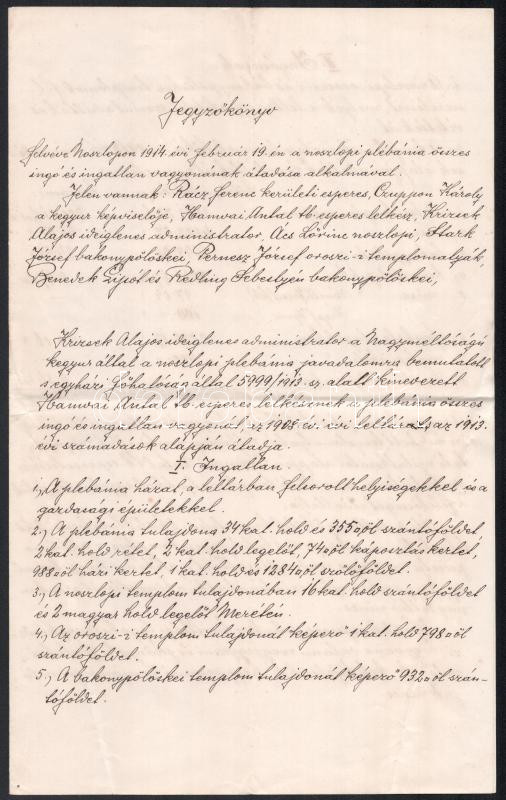 Jegyzőkönyv
felvéve Noszlopon 1914. évi február 19.-én a noszlopi plébánia összes
ingó és ingatlan vagyonának átadása alkalmával.
Jelen vannak: Rácz Ferenc kerületi esperes, Czuppon Károly
a kegyur képviselője, Hamvai Antal tb. esperes lelkész, Krizsek
Alajos ideiglenes administrator, Ács Lőrinc noszlopi, Stark
József bakonypölöskei, Pernesz József oroszi-i templomatyák,
Benedek Lipót és Redling Sebestyén bakonypölöskei,
Krizsek Alajos ideiglenes administrator a Nagyméltóságú
kegyur által a noszlopi plébánia javadalomra bemutatott
s egyházi Főhatóság által 5999/1913. sz. alatt kinevezett
Hamvai Antal tb. esperes lelkésznek a plébánia összes
ingó és ingatlan vagyonát, az 1908. évi leltár és az 1913.
évi számadások alapján átadja.
I. Ingatlan.
1.) A plébánia házat, a leltárban felsorolt helyiségekkel és a
gazdasági épületekkel.
2.) A plébánia tulajdona 34 kat. hold és 355 □öl szántóföldet,
2 kat. hold rétet, 2 kat. hold legelőt, 74 □öl káposztás kertet,
988 □öl házi kertet, 1 kat. hold és 1284 □öl szőlőföldet.
3.) A noszlopi templom tulajdonában 16 kat. hold szántóföldet
és 2 magyar hold legelőt Merétén.
4.) Az oroszi-i templom tulajdonát képező 1 kat. hold 798 □öl
szántóföldet.
5.) A bakonypölöskei templom tulajdonát képező 932 □öl szán-
tóföldet.